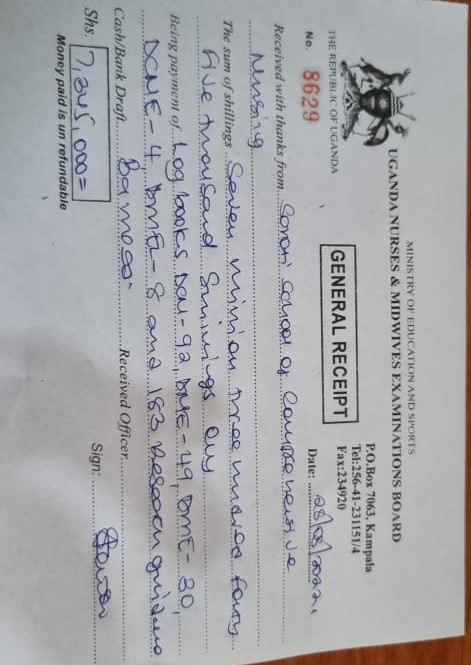 MINISTRY OF EDUCATION AND SPORTS
UGANDA NURSES & MIDWIVES EXAMINATIONS BOARD
P.O.Box 7063, Kampala
Tel:256-41-231151/4
Fax:234920
THE REPUBLIC OF UGANDA
GENERAL RECEIPT
No. 8629
Date:
Received with thanks from Soroti School of Comprehensive
Nursing
The sum of shillings Seven million three hundred forty
five thousand Shillings only
Being payment of Log books DCN-92, DME-49, DMC-30,
DCNE-4, DMEE-8 and 183 Research guidelines
Cash/Bank Draft Received Officer
Shs. 7,345,000= Sign:
Money paid is un refundable